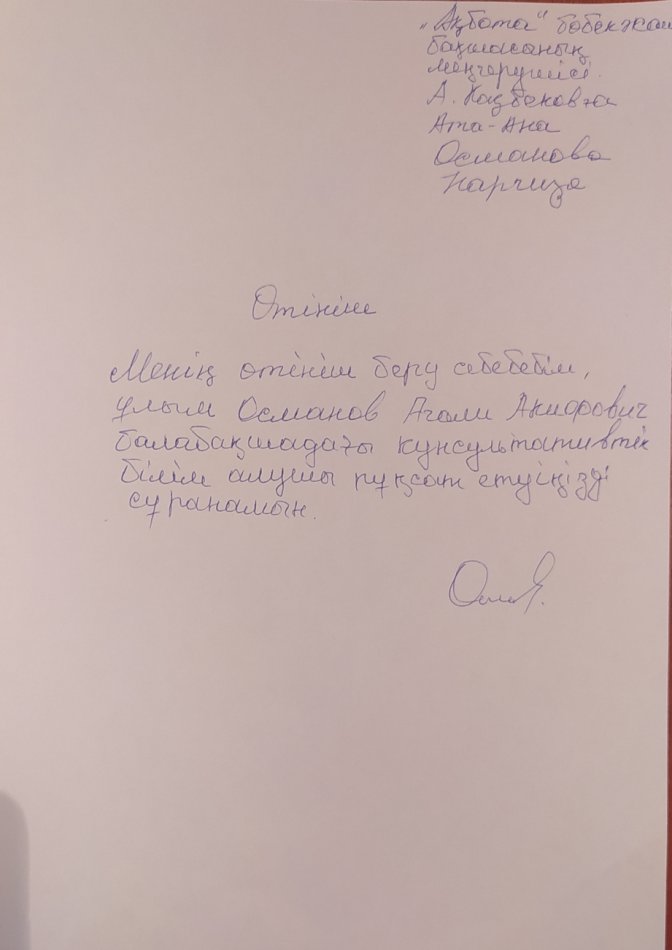 „Ақбота" бөбекжай
бақшасаның
меңгерушісі
А. Казбековаға
Ата-Ана
Османова
Наргиза
Өтініш
Менің өтініш беру себебебім,
ұлым Османов Агали Акифович
балабақшадағы кунсультативтік
білім алушы рұқсат етуіңізді
сұранамын.